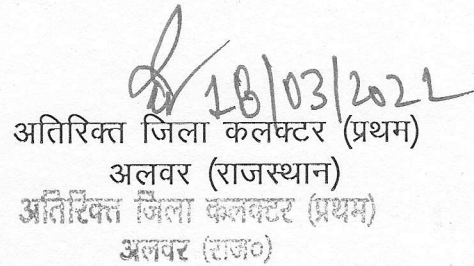 16/03/2022
अतिरिक्त जिला कलक्टर (प्रथम)
अलवर (राजस्थान)
अतिरिक्त जिला कलक्टर (प्रथम)
अलवर (राज०)